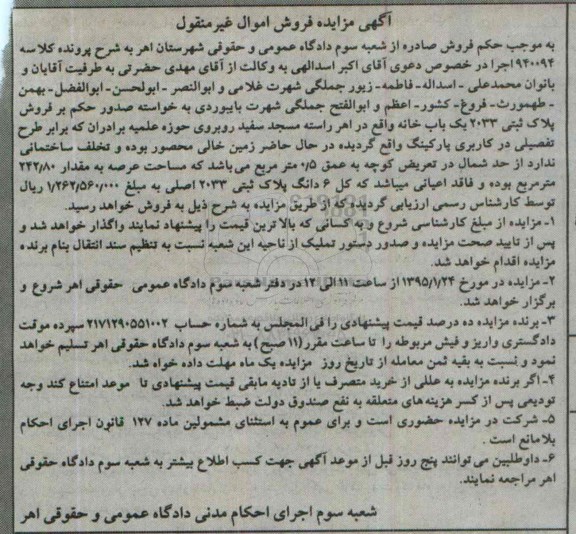 آگهی مزایده فروش اموال غیرمنقول
به موجب حکم فروش صادره از شعبه سوم دادگاه عمومی و حقوقی شهرستان اهر به شرح پرونده کلاسه
۹۴۰۰۹۴ اجرا در خصوص دعوی آقای اکبر اسدالهی به وکالت از آقای مهدی حضرتی به طرفیت آقایان و
بانوان محمدعلی - اسداله - فاطمه - زیور جملگی شهرت غلامی و ابوالنصر - ابولحسن - ابوالفضل - بهمن
- طهمورث - فروغ - کشور - اعظم و ابوالفتح جملگی شهرت بایبوردی به خواسته صدور حکم بر فروش
پلاک ثبتی ۲۰۳۳ یک باب خانه واقع در اهر راسته مسجد سفید روبروی حوزه علمیه برادران که برابر طرح
تفصیلی در کاربری پارکینگ واقع گردیده در حال حاضر زمین خالی محصور بوده و تخلف ساختمانی
ندارد از حد شمال در تعریض کوچه به عمق ۰/۵ متر مربع می باشد که مساحت عرصه به مقدار ۲۴۲/۸۰
مترمربع بوده و فاقد اعیانی میباشد که کل ۶ دانگ پلاک ثبتی ۲۰۳۳ اصلی به مبلغ ۱/۲۶۲/۵۶۰/۰۰۰ ریال
توسط کارشناس رسمی ارزیابی گردیده که از طریق مزایده به شرح ذیل به فروش خواهد رسید.
۱- مزایده از مبلغ کارشناسی شروع و به کسانی که بالاترین قیمت را پیشنهاد نمایند واگذار خواهد شد و
پس از تایید صحت مزایده و صدور دستور تملیک از ناحیه این شعبه نسبت به تنظیم سند انتقال بنام برنده
مزایده اقدام خواهد شد.
۲- مزایده در مورخ ۱۳۹۵/۱/۲۴ از ساعت ۱۱ الی ۱۲ در دفتر شعبه سوم دادگاه عمومی حقوقی اهر شروع و
برگزار خواهد شد.
۳- برنده مزایده ده درصد قیمت پیشنهادی را فی المجلس به شماره حساب ۲۱۷۱۲۹۰۵۵۱۰۰۲ سپرده موقت
دادگستری واریز و فیش مربوطه را تا ساعت مقرر (۱۱ صبح) به شعبه سوم دادگاه حقوقی اهر تسلیم خواهد
نمود و نسبت به بقیه ثمن معامله از تاریخ روز مزایده یک ماه مهلت داده خواه شد.
۴- اگر برنده مزایده به عللی از خرید متصرف یا از تادیه مابقی قیمت پیشنهادی تا موعد امتناع کند وجه
تودیعی پس از کسر هزینه های متعلقه به نفع صندوق دولت ضبط خواهد شد.
۵- شرکت در مزایده حضوری است و برای عموم به استثنای مشمولین ماده ۱۲۷ قانون اجرای احکام
بلامانع است .
۶- داوطلبین می توانند پنج روز قبل از موعد آگهی جهت کسب اطلاع بیشتر به شعبه سوم دادگاه حقوقی
اهر مراجعه نمایند.
شعبه سوم اجرای احکام مدنی دادگاه عمومی و حقوقی اهر